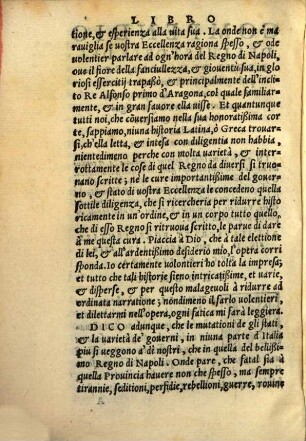 LIBRO
tione, & esperienza alla uita sua. La onde non è ma
rauiglia se uostra Eccellenza ragiona spesso, & ode
uolentier parlare ad ogn'hora del Regno di Napoli,
oue il fiore della fanciullezza, & giouentù sua, in glo
riosi essercitij trapassò, & principalmente dell'inclito
Re Alfonso primo d'Aragona, col quale familiar-
mente, & in gran fauore ella uisse. Et quantunque
tutti noi, che cõuersiamo nella sua honoratißima cor
te, sappiamo, niuna historia Latina, ò Greca trouar-
si, ch'ella letta, & intesa con diligentia non habbia.
nientedimeno perche con molta uarietà, & inter-
rottamente le cose di quel Regno da diuersi si truo-
uano scritte; nè le cure importantißime del gouer-
no, & stato di uostra Eccellenza le concedeno quella
sottile diligenza, che si ricercheria per ridurre histo
ricamente in un'ordine, & in un corpo tutto quello,
che di esso Regno si ritruoua scritto, le parue di dare
à me questa cura. Piaccia à Dio, che à tale elettione
di lei, & all'ardentißimo desiderio mio, l'opera corri
sponda. Io certamente uolentieri hò tolta la impresa;
et tutto che tali historie sieno intricatißime, et uarie,
& disperse, & per questo malageuoli à ridurre ad
ordinata narratione; nondimeno il farlo uolentieri,
et dilettarmi nell'opera, ogni fatica mi farà leggiera.
DICO adunque, che le mutationi de gli stati,
& la uarietà de' gouerni, in niuna parte d'Italia
più si ueggono à dì nostri, che in quella del bellißi-
mo Regno di Napoli. Onde pare, che fatal sia à
quella Prouincia hauere non che spesso, ma sempre
tirannie, seditioni, perfidie, rebellioni, guerre, rouine